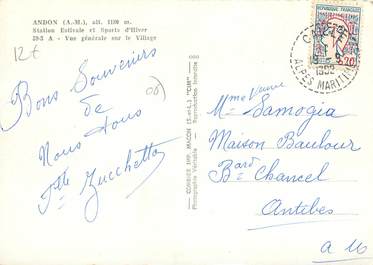 ANDON (A.-M.), alt. 1180 m.
Station Estivale et Sports d'Hiver
39-3 A - Vue générale sur le Village
12€
Bons Souvenirs
de
Nous tous
Flle Zucchetto
06
COMBIER IMP. MACON (S.-et-L.) "CIM"
Photographie Véritable - Reproduction Interdite
REPUBLIQUE FRANCAISE
0,20
ALPES MARITIMES
Mme Veuve
Samogia
Maison Baulour
Bard Chancel
Antibes
A M